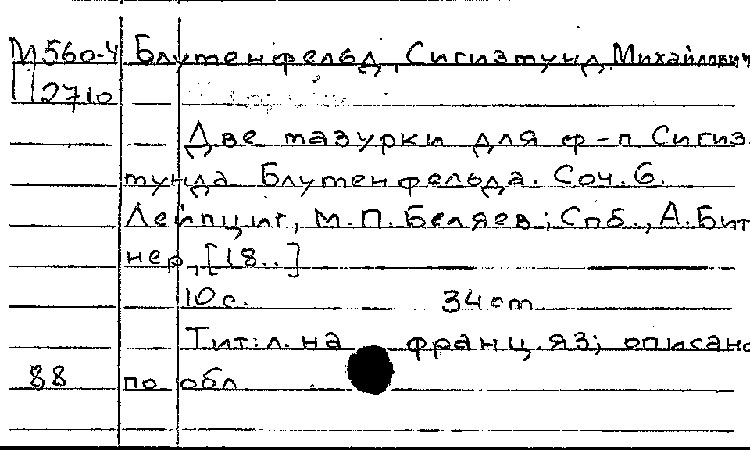 М 560-4 Блуменфельд, Сигизмунд Михайлович
П 2710
Две мазурки для ф-п Сигиз-
мунда Блуменфельда. Соч. 6.
Лейпциг, М. П. Беляев; Спб., А. Бит-
нер, [18..]
10 с. 34 cm
Тит. л. на франц. яз; описано
88 по обл